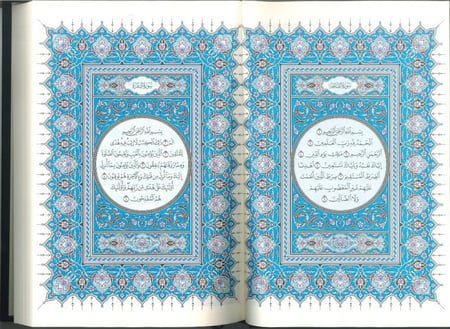 سُورَةُ الفَاتِحَةِ
بِسْمِ ٱللَّهِ ٱلرَّحْمَٰنِ ٱلرَّحِيمِ ١
ٱلْحَمْدُ لِلَّهِ رَبِّ ٱلْعَٰلَمِينَ ٢
ٱلرَّحْمَٰنِ ٱلرَّحِيمِ ٣ مَٰلِكِ يَوْمِ ٱلدِّينِ ٤
إِيَّاكَ نَعْبُدُ وَإِيَّاكَ نَسْتَعِينُ ٥ ٱهْدِنَا
ٱلصِّرَٰطَ ٱلْمُسْتَقِيمَ ٦ صِرَٰطَ ٱلَّذِينَ أَنْعَمْتَ
عَلَيْهِمْ غَيْرِ ٱلْمَغْضُوبِ عَلَيْهِمْ
وَلَا ٱلضَّآلِّينَ ٧
سُورَةُ البَقَرَةِ
بِسْمِ ٱللَّهِ ٱلرَّحْمَٰنِ ٱلرَّحِيمِ
الٓمٓ ١ ذَٰلِكَ ٱلْكِتَٰبُ لَا رَيْبَ فِيهِ هُدًى
لِّلْمُتَّقِينَ ٢ ٱلَّذِينَ يُؤْمِنُونَ بِٱلْغَيْبِ وَيُقِيمُونَ ٱلصَّلَوٰةَ
وَمِمَّا رَزَقْنَٰهُمْ يُنفِقُونَ ٣ وَٱلَّذِينَ يُؤْمِنُونَ بِمَآ أُنزِلَ
إِلَيْكَ وَمَآ أُنزِلَ مِن قَبْلِكَ وَبِٱلْءَاخِرَةِ هُمْ يُوقِنُونَ ٤
أُوْلَٰٓئِكَ عَلَىٰ هُدًى مِّن رَّبِّهِمْ وَأُوْلَٰٓئِكَ
هُمُ ٱلْمُفْلِحُونَ ٥